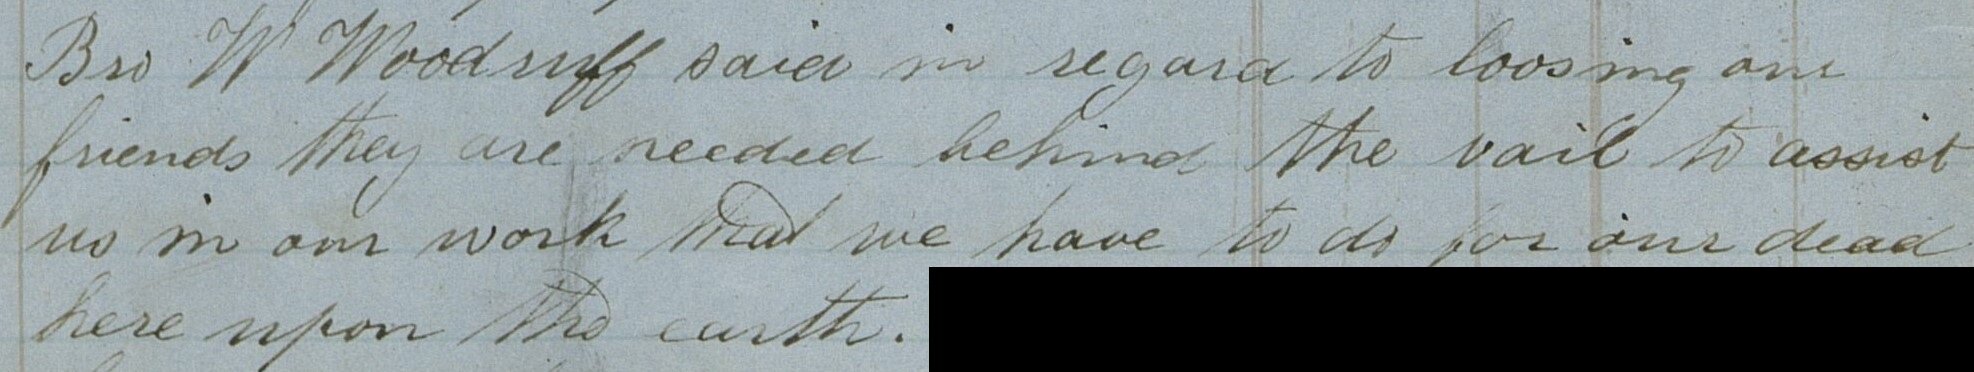 Bro W Woodruff said in regard to loosing our
friends they are needed behind the vail to assist
us in our work that we have to do for our dead
here upon the earth.